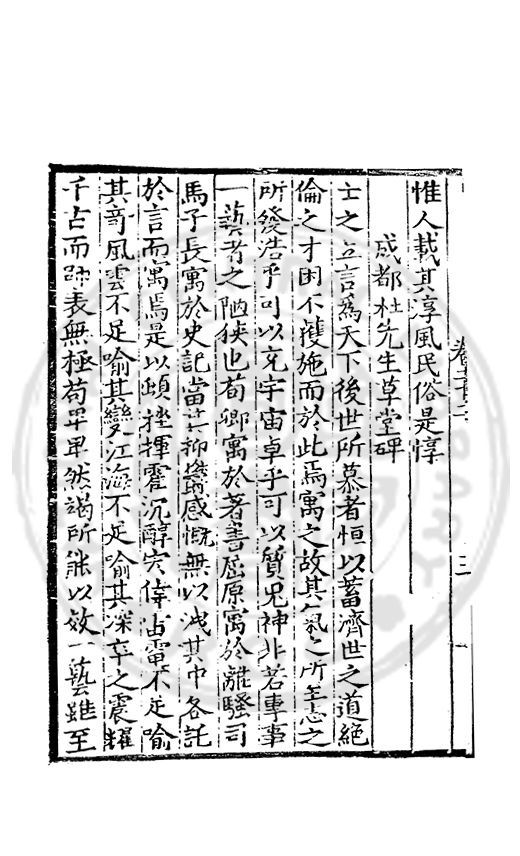 惟人載其淳風民俗是惇
成都杜先生草堂碑
士之立言為天下後世所慕者恒以蓄濟世之道絕
倫之才困不獲施而於此焉寓之故其氣之所至志之
所發浩乎可以充宇宙卓乎可以質鬼神非若專事
一藝者之陋狹也荀卿寓於著書屈原寓於離騷司
馬子長寓於史記當其抑鬱感慨無以洩其中各託
於言而寓焉是以頓挫揮霍沉醇宏偉雷不足喻
其奇風雲不足喻其變江海不足喻其深卒之震耀
千古而師表無極苟卑卑然竭所能以效一藝雖至